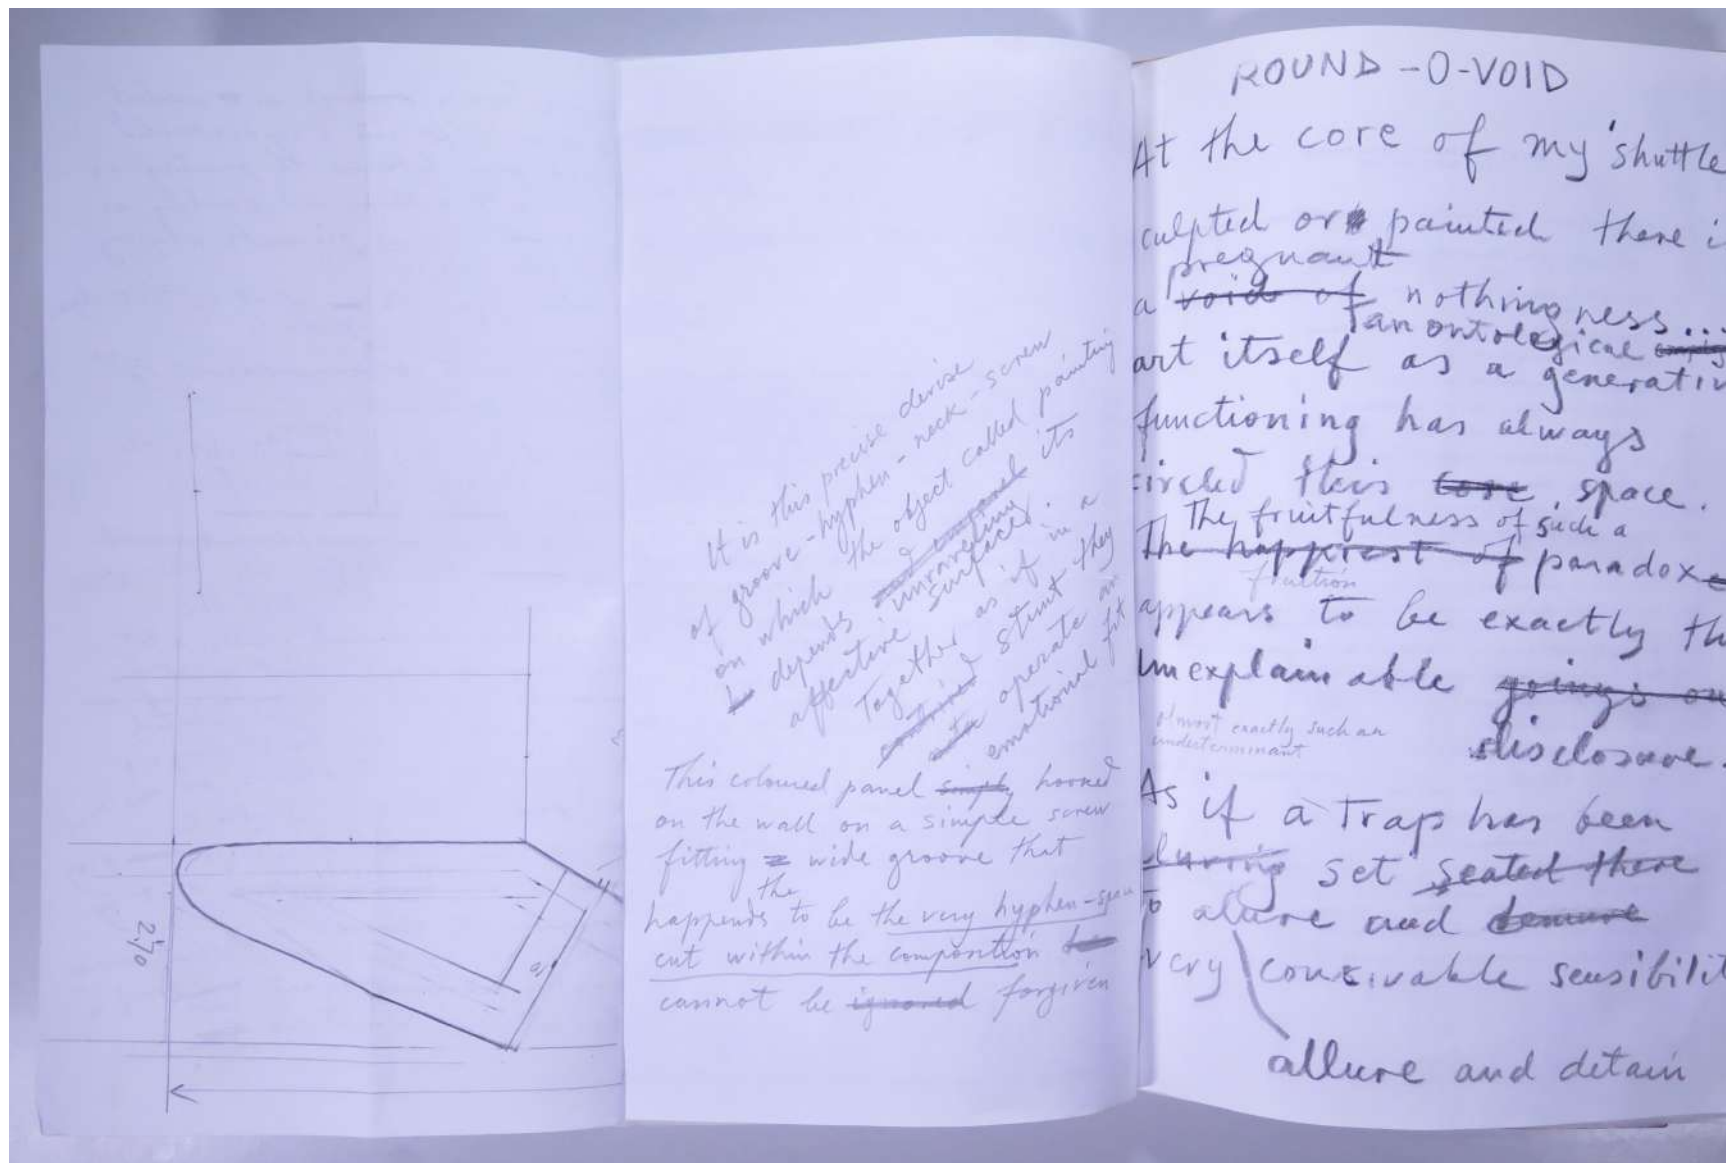 2,70
It is this precise devise
of groove-hyphen-neck-screw
on which the object called painting
depends and unravels its
unraveling
affective surfaces.
Together as if in a
combined stunt they
operate an
emotional fit
This coloured panel simply hooked
on the wall on a simple screw
fitting wide groove that
the
happends to be the very hyphen-space
cut within the composition
cannot be ignored forgiven
ROUND-O-VOID
At the core of my 'shuttle
culpted or painted there i
pregnant
a void of nothingness...
an ontological
art itself as a generativ
functioning has always
circled this core space.
The fruitfulness of such a
The happiest of paradox
fruition
appears to be exactly th
unexplainable goings on
almost exactly such an
undeterminant
disclosure.
As if a Trap has been
luring set seated there
to alure and demure
very conceivable sensibilit
allure and detain